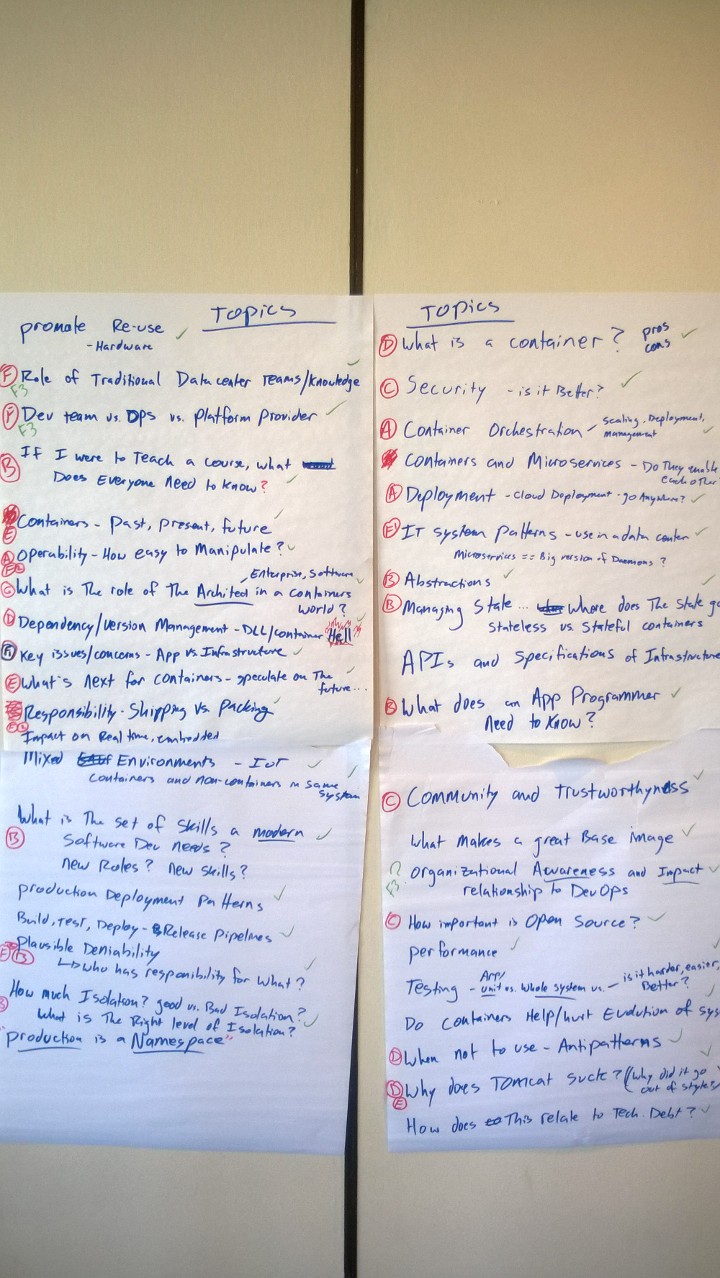 Topics
promote Re-use ✓
- Hardware
F Role of Traditional Data center Teams/Knowledge ✓
F3
F Dev team vs. OPS vs. Platform Provider ✓
F3
B If I were to Teach a course, what
Does Everyone Need to Know? ✓
E Containers - Past, Present, future ✓
A Operability - How easy to Manipulate? ✓
Enterprise, Software
G What is The role of The Architect in a containers
world? ✓
D Dependency/version Management - DLL/container Hell
A Key issues/concerns - App vs Infrastructure ✓
E What's Next for containers - speculate on The
future...
Responsibility - Shipping vs. Packing ✓
Impact on Real time, embedded
Mixed Environments - IoT ✓
Containers and non-containers in same
system
What is The set of skills a modern ✓
B Software Dev needs?
New Roles? New skills?
production Deployment Patterns ✓
Build, Test, Deploy - Release Pipelines ✓
Plausible Deniability
F B
↳ who has responsibility for what? ✓
B How much Isolation? good vs. Bad Isolation?
What is The Right level of Isolation? ✓
"production is a Namespace"
Topics
D What is a container? pros ✓
cons
C Security - is it Better? ✓
A Container Orchestration - scaling, Deployment,
management ✓
Containers and Microservices - Do They enable
each other
A Deployment - Cloud Deployment - go Anywhere? ✓
E IT system Patterns - use in a data center
microservices == Big version of Daemons?
B Abstractions ✓
B Managing State... Where does The State go
Stateless vs. Stateful containers
APIs and Specifications of Infrastructure
B What does an App Programmer ✓
Need to Know?
C Community and Trustworthyness ✓
What makes a great Base image ✓
Organizational Awareness and Impact ✓
F3
relationship to DevOps
C How important is Open Source? ✓
performance ✓
App/
Testing - unit vs. Whole system vs. - is it harder, easier,
Better?
Do containers Help/hurt Evolution of sys
D When not to use - Antipatterns ✓
D Why does Tomcat suck? (why did it go
E out of styles
How does This relate to Tech. Debt? ✓